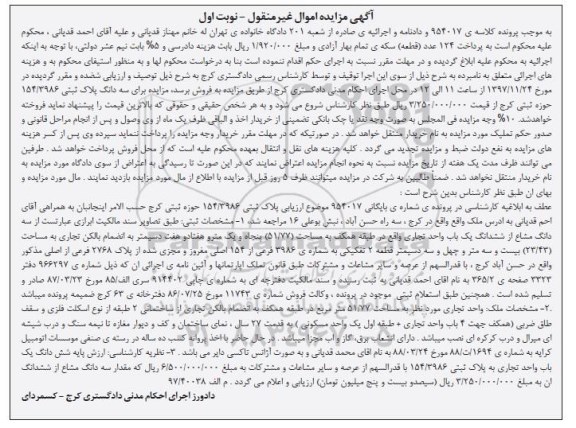 آگهی مزایده اموال غیرمنقول - نوبت اول
به موجب پرونده کلاسه ی ۹۵۴۰۱۷ و دادنامه و اجرائیه ی صادره از شعبه ۲۰۱ دادگاه خانواده ی تهران له خانم مهناز قدیانی و علیه آقای احمد قدیانی ، محکوم
علیه محکوم است به پرداخت ۱۲۴ عدد (قطعه) سکه ی تمام بهار آزادی و مبلغ ۱/۹۲۰/۰۰۰ ریال بابت هزینه دادرسی و ۵% بابت نیم عشر دولتی، با توجه به اینکه
اجرائیه به محکوم علیه ابلاغ گردیده و در مهلت مقرر نسبت به اجرای حکم اقدام ننموده است بنا به درخواست محکوم لها و به منظور استیفای محکوم به و هزینه
های اجرائی متعلق به نامبرده به شرح ذیل از سوی این اجرا توقیف و توسط کارشناس رسمی دادگستری کرج به شرح ذیل توصیف و ارزیابی شده و مقرر گردیده در
مورخ ۱۳۹۷/۱۱/۲۴ از ساعت ۱۱ الی ۱۲ در محل اجرای احکام مدنی دادگستری کرج از طریق مزایده به فروش برسد، مزایده برای سه دانگ پلاک ثبتی ۱۵۴/۳۹۸۶
حوزه ثبتی کرج از قیمت ۳/۲۵۰/۰۰۰/۰۰۰ ریال طبق نظر کارشناس شروع می شود و به هر شخص حقیقی و حقوقی که بالاترین قیمت را پیشنهاد نماید فروخته
خواهدشد. ۱۰% وجه مزایده فی المجلس به صورت وجه نقد یا چک بانکی تضمینی از خریدار اخذ و الباقی ظرف یک ماه از وی وصول و پس از انجام مراحل قانونی و
صدور حکم تملیک مورد مزایده به نام خریدار منتقل خواهد شد . در صورتیکه که در مهلت مقرر خریدار وجه مزایده را پرداخت ننماید سپرده وی پس از کسر هزینه
های مزایده به نفع دولت ضبط و مزایده تجدید می گردد . کلیه هزینه های نقل و انتقال بعهده محکوم علیه است که از محل فروش پرداخت خواهد شد . طرفین
می توانند ظرف مدت یک هفته از تاریخ مزایده نسبت به نحوه انجام مزایده اعتراض نمایند که در این صورت تا رسیدگی به اعتراض از سوی دادگاه مورد مزایده به
نام خریدار منتقل نخواهد شد . ضمنا طالبین به شرکت در مزایده میتوانند ظرف ۵ روز قبل از مزایده با اطلاع از مال مورد مزایده بازدید نمایند . مال مورد مزایده و
بهای ان طبق نظر کارشناس بدین شرح است :
عطف به ابلاغیه کارشناسی در پرونده ی شماره ی بایگانی ۹۵۴۰۱۷ موضوع ارزیابی پلاک ثبتی ۱۵۴/۳۹۸۶ حوزه ثبتی کرج حسب الامر اینجانبان به همراهی آقای
احم قدیانی به ادرس ملک واقع واقع در کرج ، سه راه حسن آباد ، نبش بوعلی ۱۶ مراجعه شد. ۱- مشخصات ثبتی: طبق تصاویر سند مالکیت ابرازی عبارتست از سه
دانگ مشاع از ششدانگ یک باب واحد تجاری واقع در طبقه همکف به مساحت (۵۱/۷۷) پنجاه و یک مترو هفتادو هفت دسیمتر به انضمام بالکن تجاری به مساحت
(۲۳/۴۳) بیست و سه متر و چهل و سه دسیمتر قطعه ۲ تفکیکی به شماره ی ۳۹۸۶ فرعی از ۱۵۴ اصلی مفروز و مجزی شده از پلاک ۲۷۶۸ فرعی از اصلی مذکور
واقع در حسن آباد کرج ، با قدرالسهم از عرصه و سایر مشاعات و مشترکات طبق قانون تملک اپارتمانها و آئین نامه ی اجرائی ان که ذیل شماره ی ۹۶۶۲۹۷ دفتر
۳۳۲۳ صفحه ی ۳۶۵/۲ به نام اقای احمد قدیانی به ثبت رسیده و سند مالکیت دفترچه ای به شماره ی چاپی ۹۱۴۴۰۲ سری الف/۸۵ مورخ ۸۷/۰۳/۲۳ صادر و
تسلیم شده است . همچنین طبق استعلام ثبتی موجود در پرونده ، وکالت فروش شماره ی ۱۱۷۴۳ مورخ ۸۶/۰۷/۲۵ دفترخانه ی ۶۳ کرج ضمیمه پرونده میباشد
۲- مشخصات ملک: واحد تجاری مورد نظر به مساحت ۵۱/۷۷ متر مربع در طبقه همکف به انضمام بالکن تجاری از ساختمانی ۲ طبقه از نوع اسکلت فلزی و سقف
طاق ضربی (همکف جهت ۴ باب واحد تجاری + طبقه اول یک واحد مسکونی) به قدمت ۲۷ سال ، نمای ساختمان و کف و دیوار مغازه تا نیمه سنگ و درب شیشه
ای میرال و درب کرکره ای نصب میباشد . دارای انشعاب برق، گاز و اب مجزا میباشد . در حال حاضر با اخذ پروانه کسب ده ساله در رسته ی صنفی موسسات اتومبیل
کرایه به شماره ی ۱۶۹۴/ت/۸۸ مورخ ۸۸/۰۳/۲۴ به نام اقای محمد قدیانی و به صورت آژانس تاکسی دایر می باشد . ۳- نظریه کارشناسی: ارزش پایه شش دانگ یک
باب واحد تجاری به پلاک ثبتی ۱۵۴/۳۹۸۶ با قدرالسهم از عرصه و سایر مشاعات و مشترکات به مبلغ ۶/۵۰۰/۰۰۰/۰۰۰ ریال که مقدار سه دانگ مشاع از ششدانگ
ان به مبلغ ۳/۲۵۰/۰۰۰/۰۰۰ ریال (سیصدو بیست و پنج میلیون تومان) ارزیابی و اعلام می گردد . م الف ۹۷/۴۰۰۳۸
دادورز اجرای احکام مدنی دادگستری کرج - کسمردای